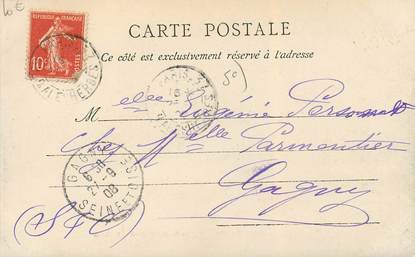 10€
CARTE POSTALE
Ce côté est exclusivement réservé à l'adresse
RÉPUBLIQUE FRANÇAISE
10c
POSTES
PARIS
5c
M elle Eugénie
Chez Melle Parmentier
Gagny
(S&O)
GAGNY
08
SEINE ET OISE